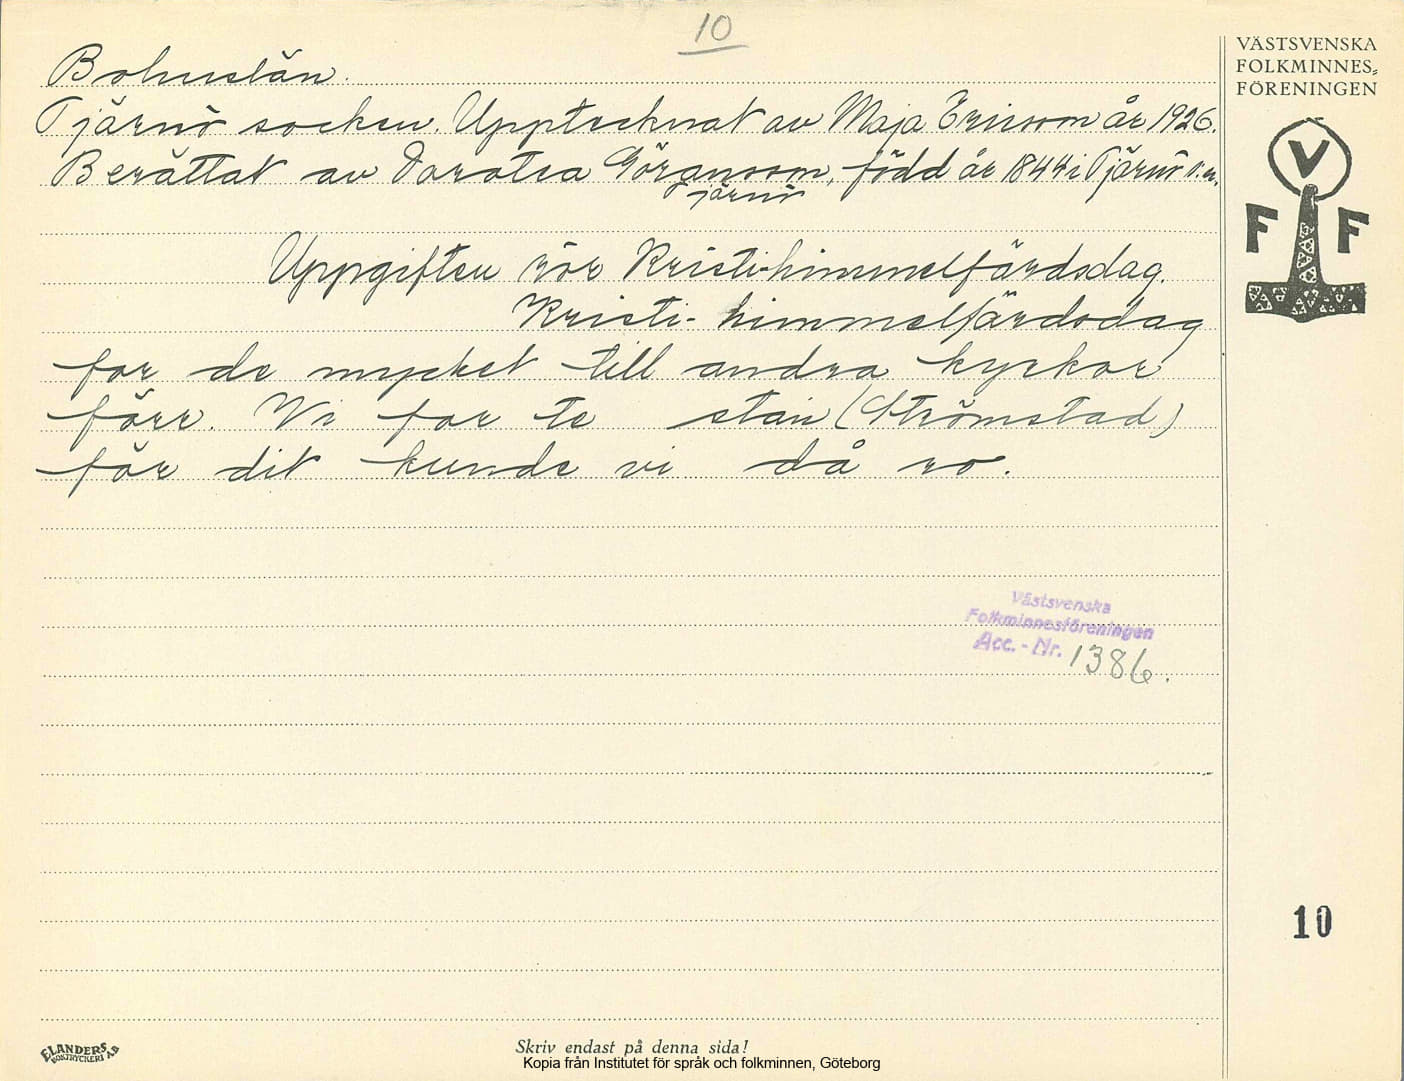 10
Bohuslän.
Tjärnö socken. Upptecknat av Maja Ericson år 1926.
Berättat av Dorotea Göransson, född år 1844 i Tjärnö s.n.
Tjärnö
Uppgiften rör Kristi-himmelfärdsdag.
Kristi-himmelfärdsdag
for de mycket till andra kyrkor
förr. Vi for te stan (Strömstad)
för dit kunde vi då ro.
VÄSTSVENSKA
FOLKMINNES-
FÖRENINGEN
V
F F
Västsvenska
Folkminnesföreningen
Acc. - Nr. 1386.
10
ELANDERS
BOKTRYCKERI AB
Skriv endast på denna sida!
Kopia från Institutet för språk och folkminnen, Göteborg